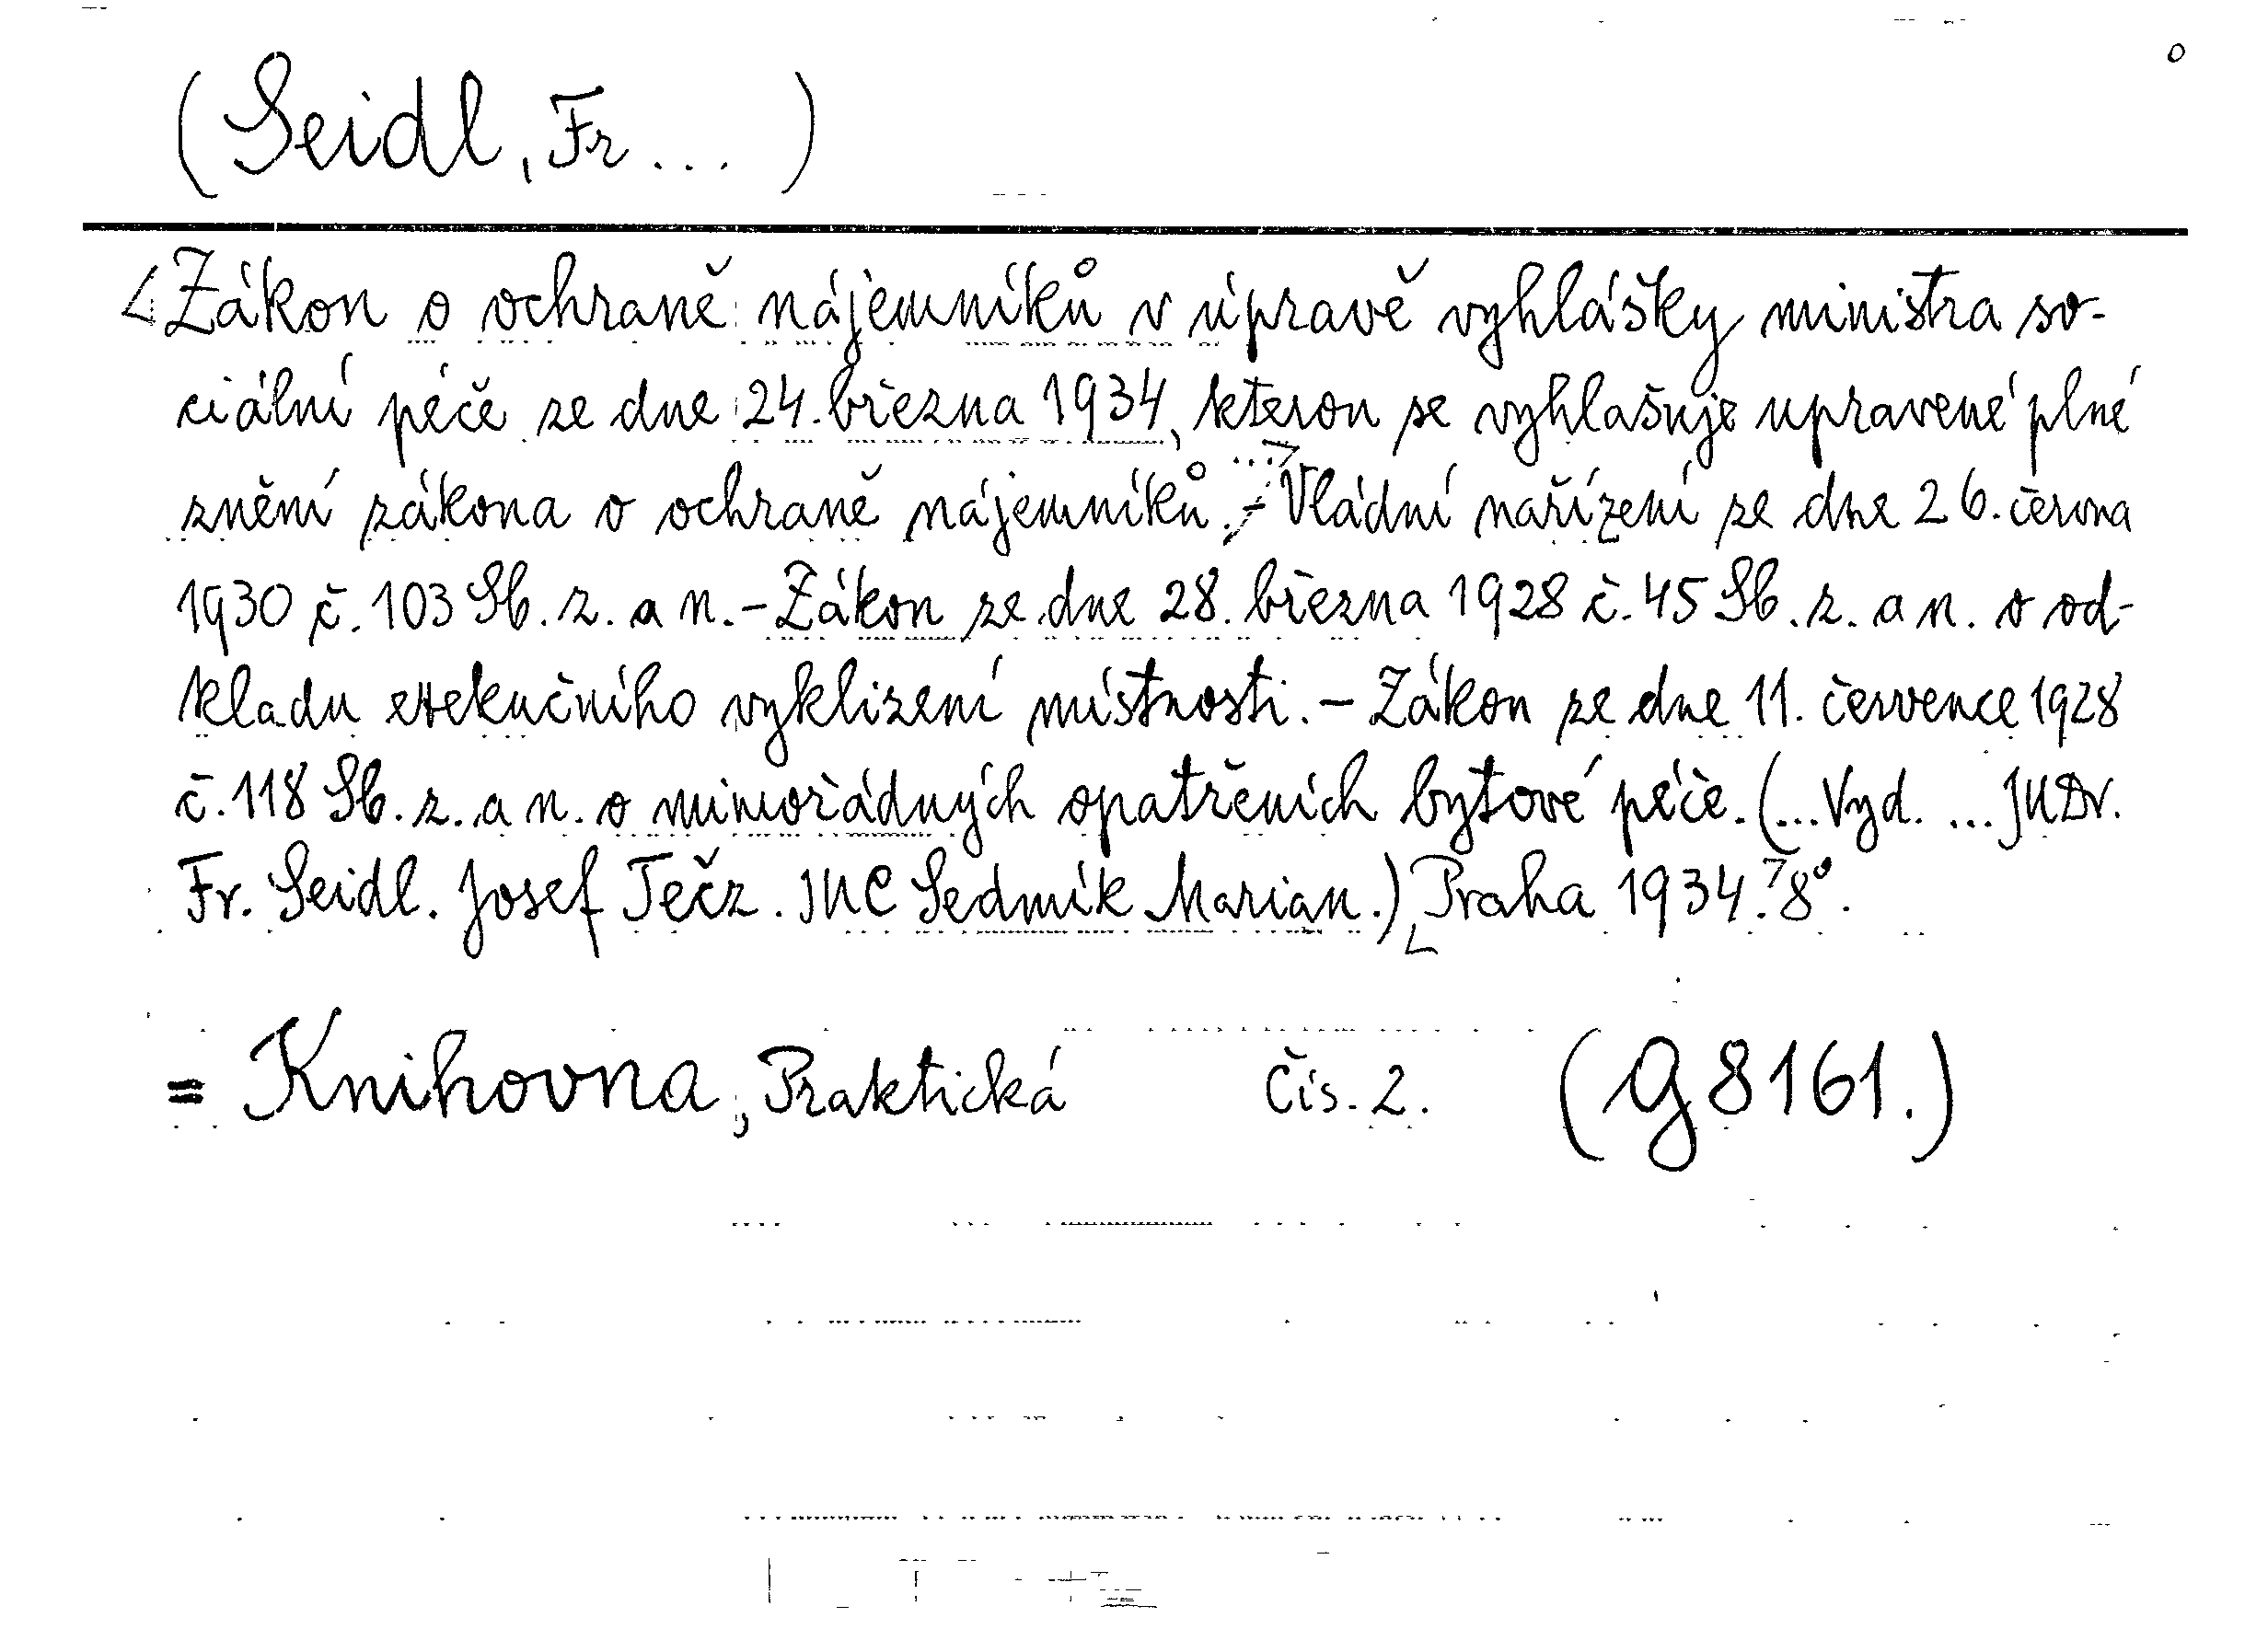 (Seidl, Fr... )
Zákon o ochraně nájemníků v úpravě vyhlášky ministra so-
ciální péče ze dne 24. března 1934, kterou se vyhlašuje upravené plné
znění zákona o ochraně nájemníků. - Vládní nařízení ze dne 26. června
1930 č. 103 Sb. z. a n. - Zákon ze dne 28. března 1928 č. 45 Sb. z. a n. o od-
kladu exekučního vyklizení místnosti. - Zákon ze dne 11. července 1928
č. 118 Sb. z. a n. o mimořádných opatřeních bytové péče. (... Vyd. ... JUDr.
Fr. Seidl. Josef Tečz. JUC Sedmík Marian.) Praha 1934. 8°.
= Knihovna, Praktická čís. 2. (G 8161.)